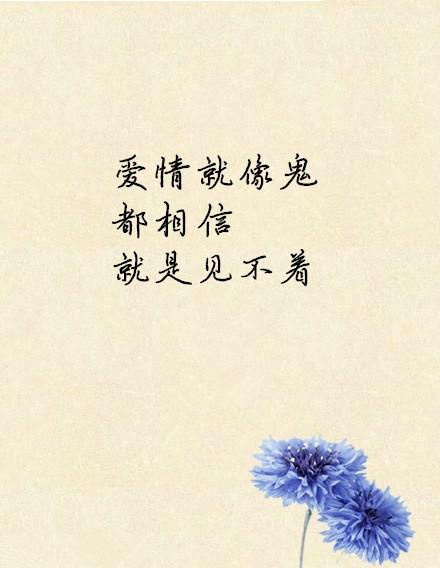 爱情就像鬼
都相信
就是见不着